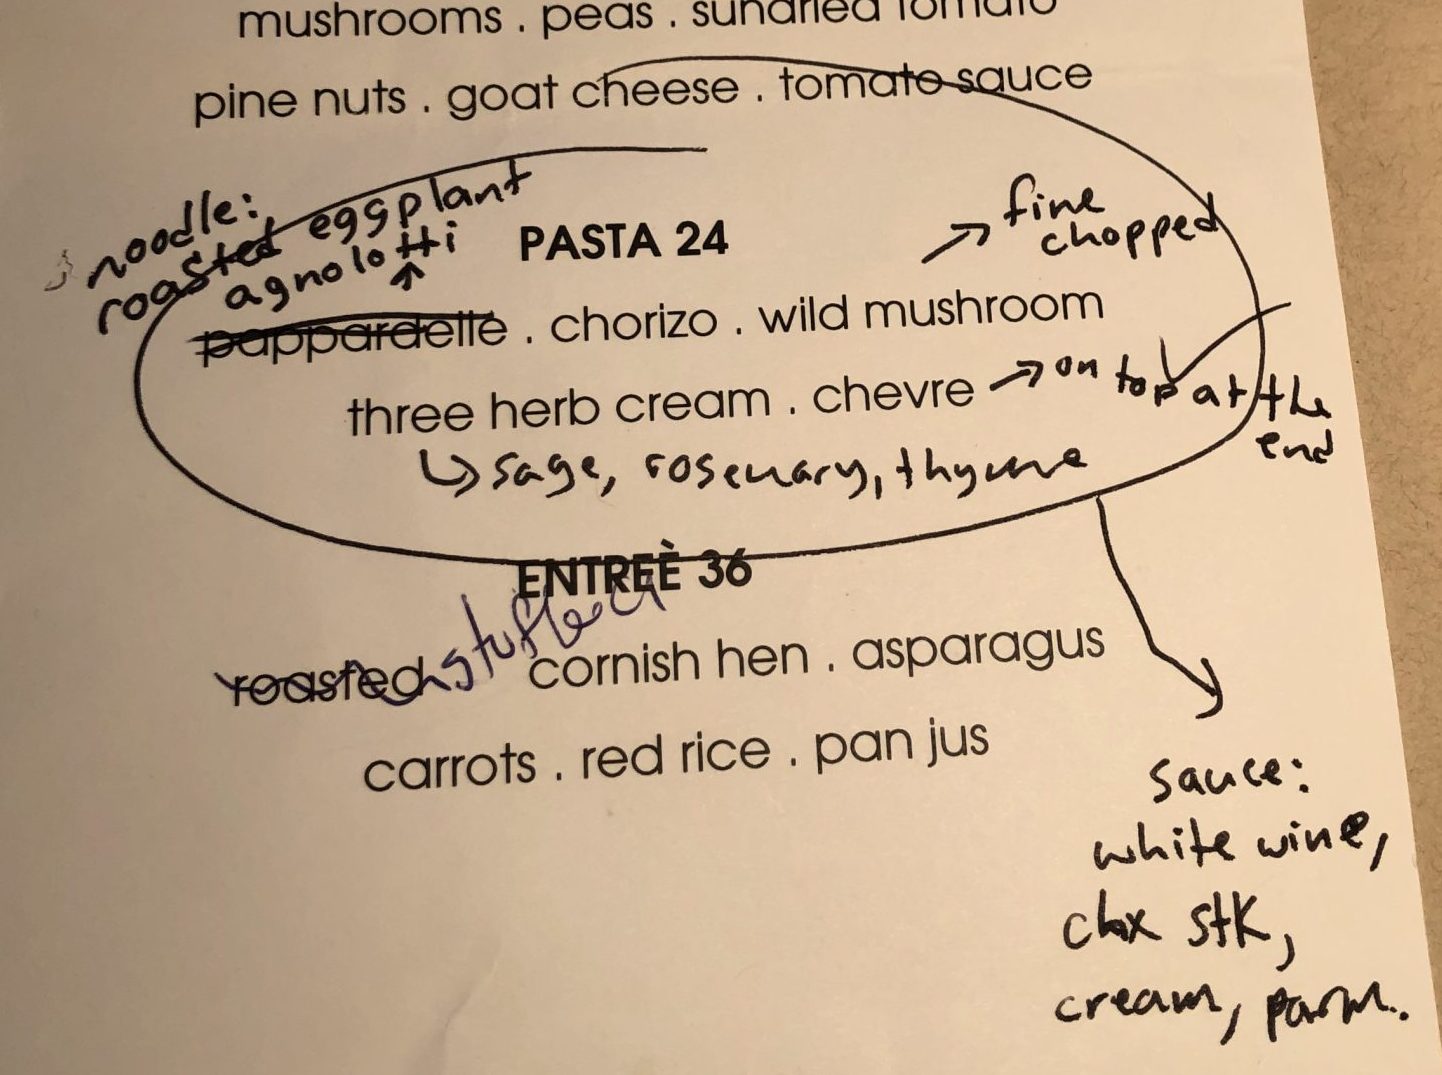 mushrooms . peas . sundried tomato
pine nuts . goat cheese . tomato sauce
noodle:
roasted eggplant
agnolotti
PASTA 24
fine
chopped
pappardelle . chorizo . wild mushroom
three herb cream . chevre → on top at the
end
sage, rosemary, thyme
ENTREÈ 36
roasted stuffed cornish hen . asparagus
carrots . red rice . pan jus
sauce:
white wine,
chx stk,
cream, parm.